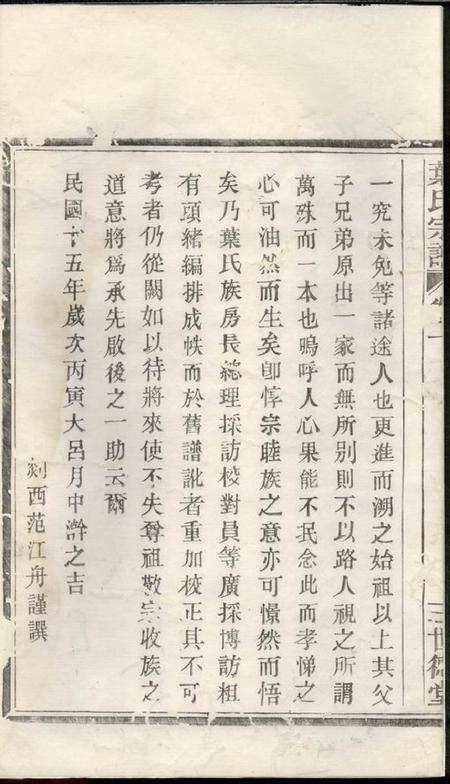 葉氏宗譜 卷之一 三世德堂
一究未免等諸途人也更進而溯之始祖以上其父
子兄弟原出一家而無所別則不以路人視之所謂
萬殊而一本也嗚呼人心果能不民念此而孝悌之
心可油然而生矣卽惇宗睦族之意亦可憬然而悟
矣乃葉氏族房長總理採訪校對員等廣採博訪粗
有頭緒編排成帙而於舊譜訛者重加校正其不可
考者仍從闕如以待將來使不失尊祖敬宗收族之
道意將爲承先啟後之一助云爾
民國十五年歲次丙寅大呂月中澣之吉
剡西范江舟謹譔